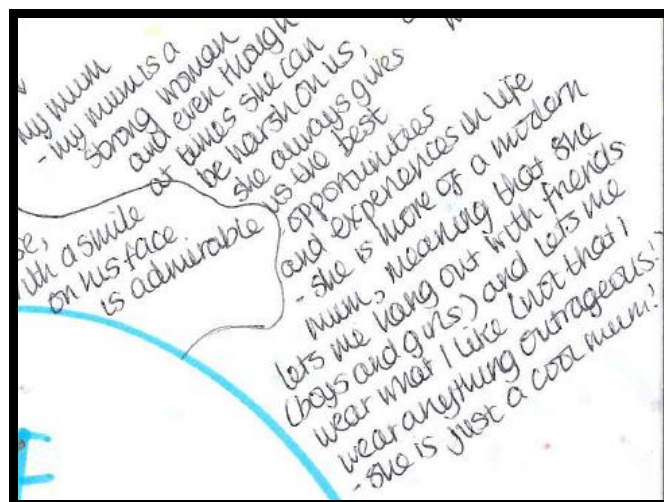 my mum
- my mum is a
strong woman
and even though
at times she can
be harsh on us,
she always gives
us the best
opportunities
and experiences in life
- she is more of a modern
mum, meaning that she
lets me hang out with friends
(boys and girls) and lets me
wear what I like (not that I
wear anything outrageous!)
- she is just a cool mum!
se,
with a smile
on his face
is admirable